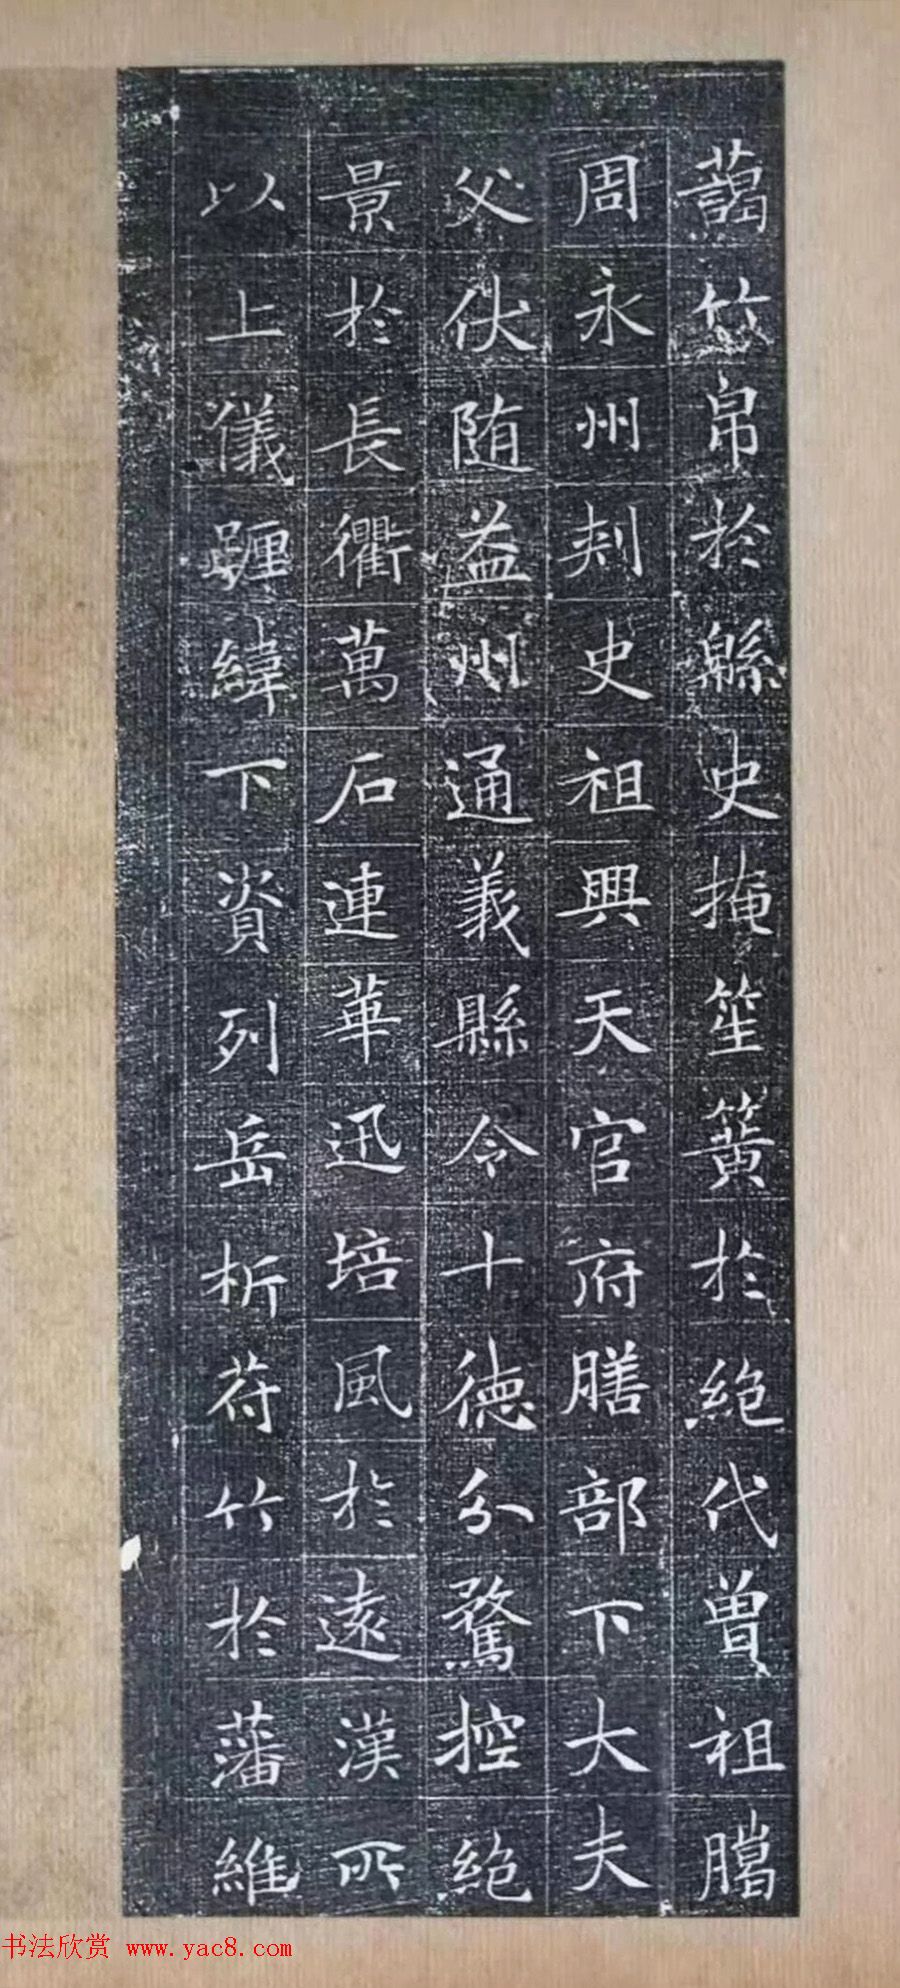 蔼竹帛於緜史掩笙簧於絶代曽祖騰
周永州刾史祖興天官府膳部下大夫
父伏随益州通義縣令十德分騖控絶
景於長衢萬石連華迅培風於遠漢所
以上儀躔緯下資列岳析苻竹於藩維
书法欣赏 www.yac8.com